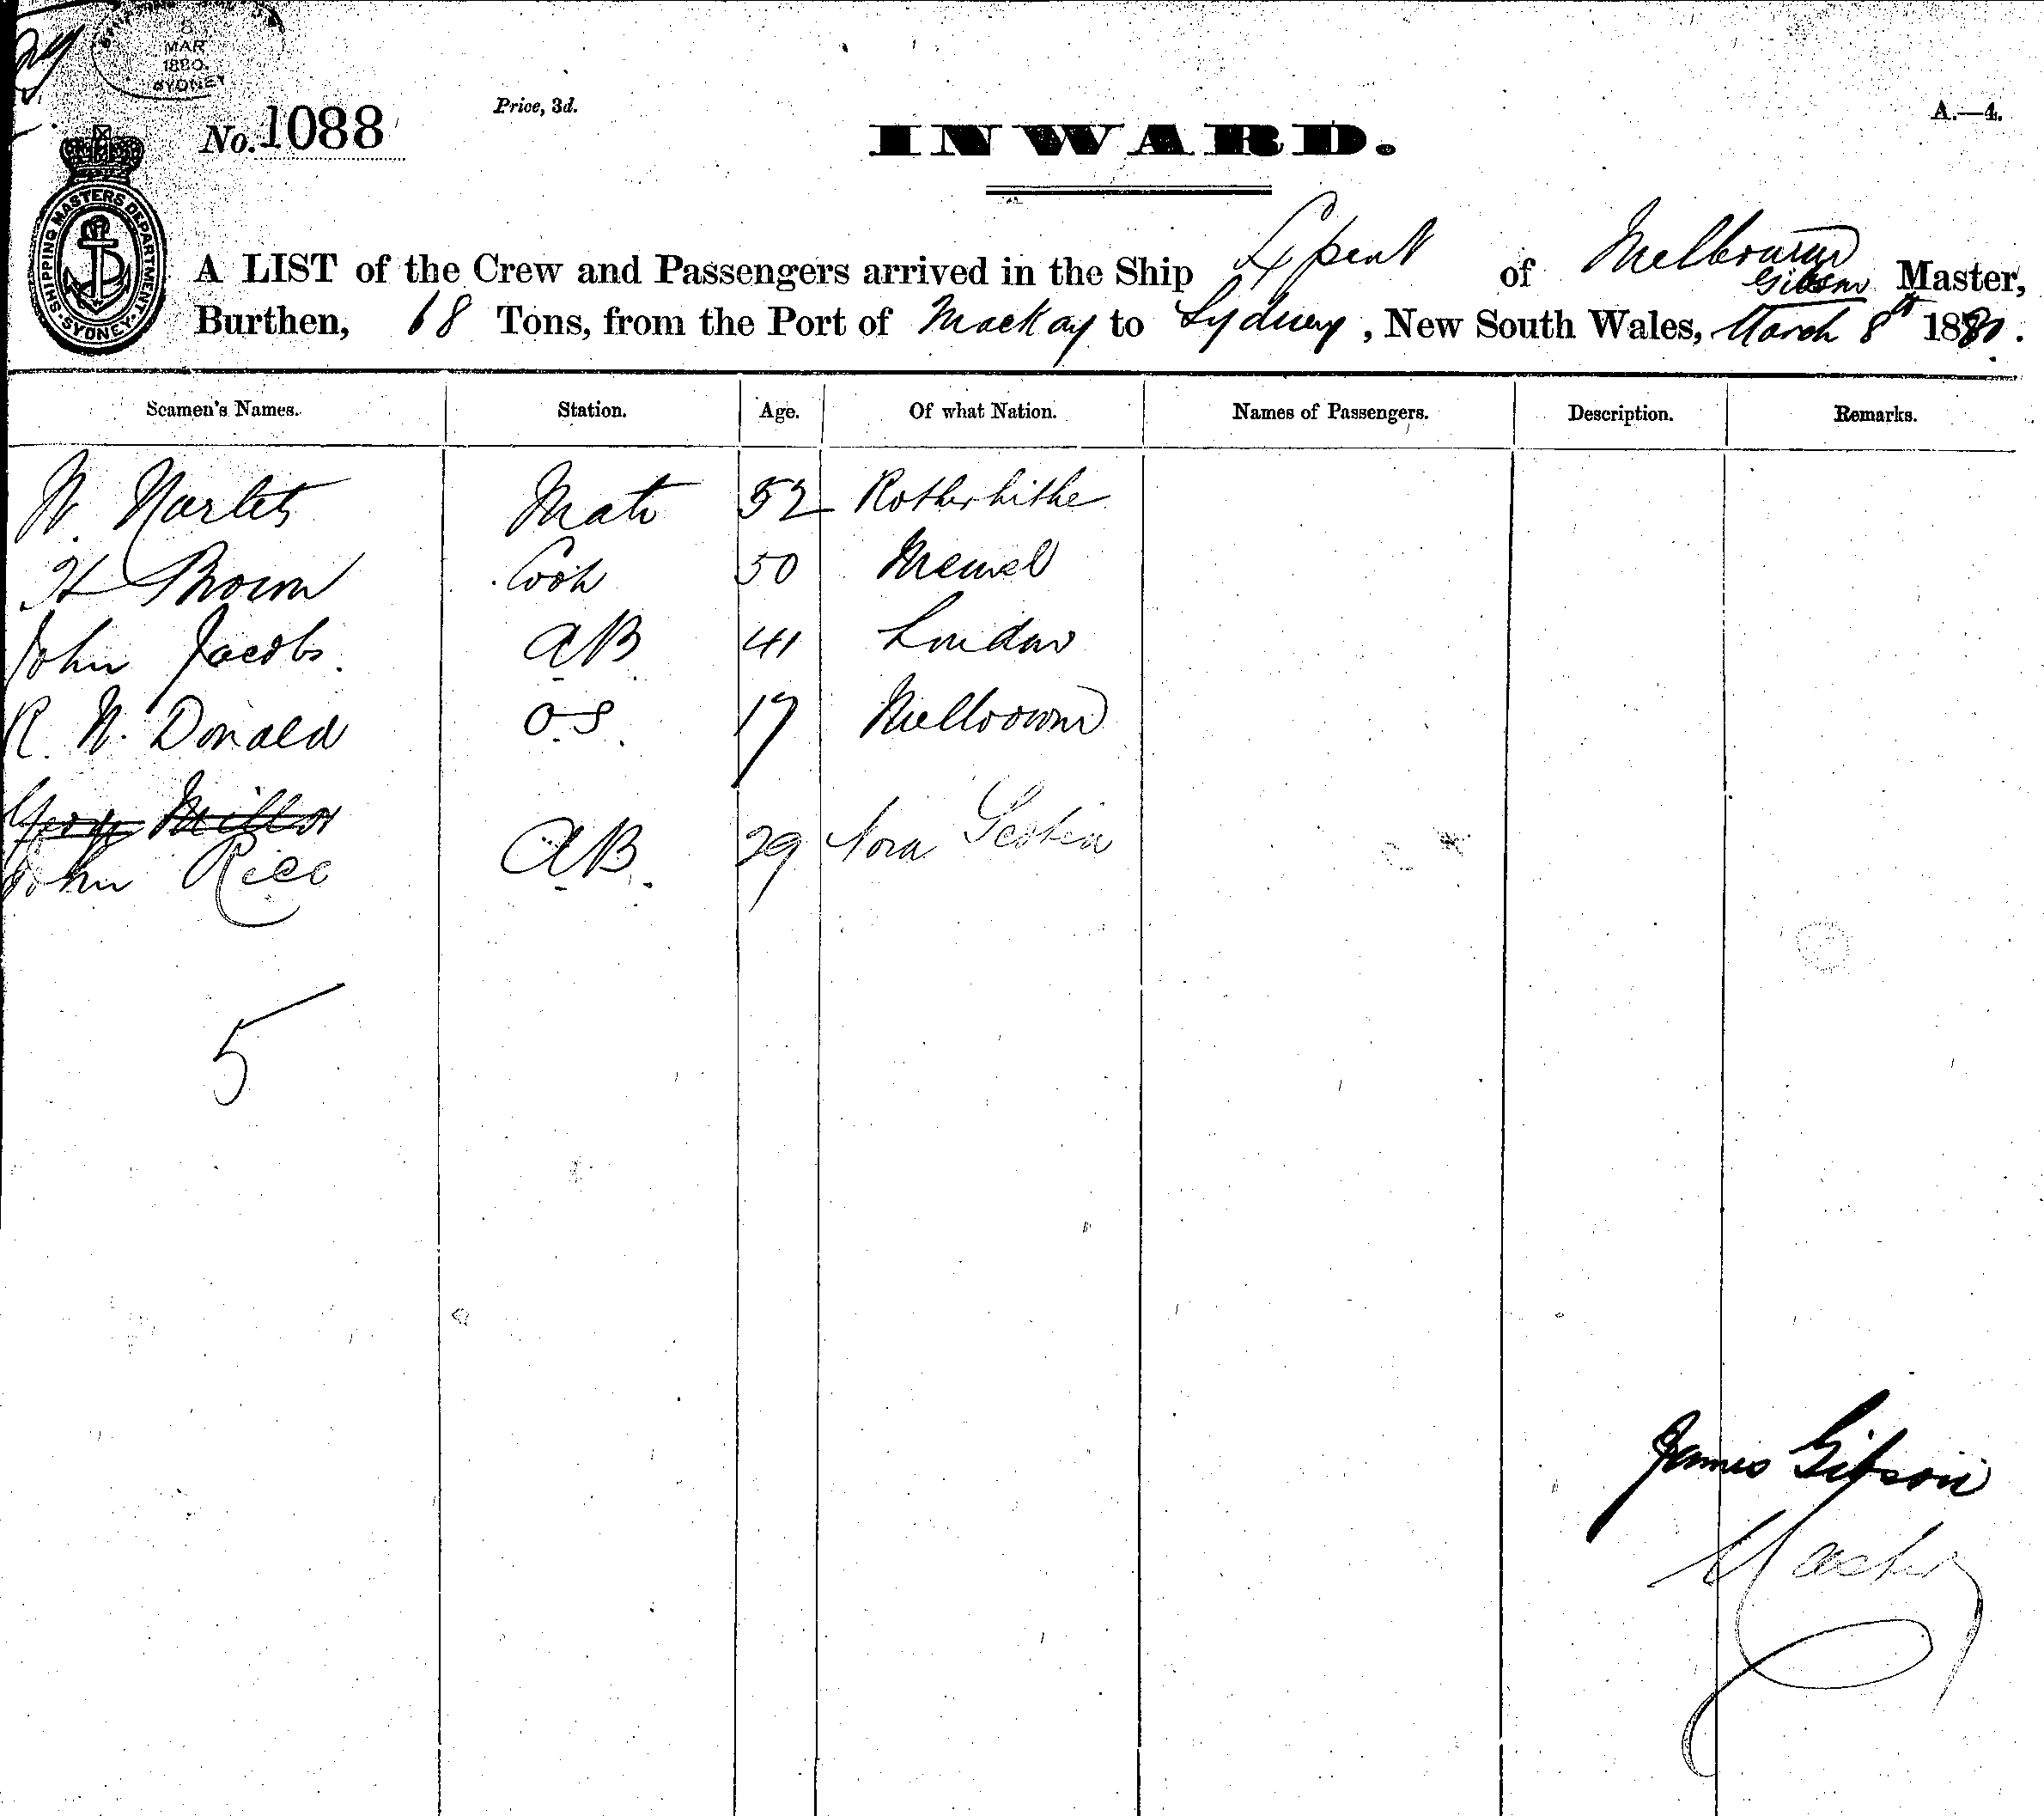 8
MAR
1880.
SYDNEY
No. 1088
Price, 3d.
INWARD.
A.—4.
SHIPPING MASTERS DEPARTMENT
SYDNEY
A LIST of the Crew and Passengers arrived in the Ship of Melbourne Gibson Master,
Burthen, 68 Tons, from the Port of Mackay to Sydney, New South Wales, March 8th 1880.
Seamen's Names. Station. Age. Of what Nation. Names of Passengers. Description. Remarks.
Mate 52 Rotherhithe
H Brown Cook 50 Memel
John Jacobs. AB. 41 London
R. N. Donald O.S. 17 Melbourne
George Miller
John Rice AB. 29 Nova Scotia
5
James Gibson
Master